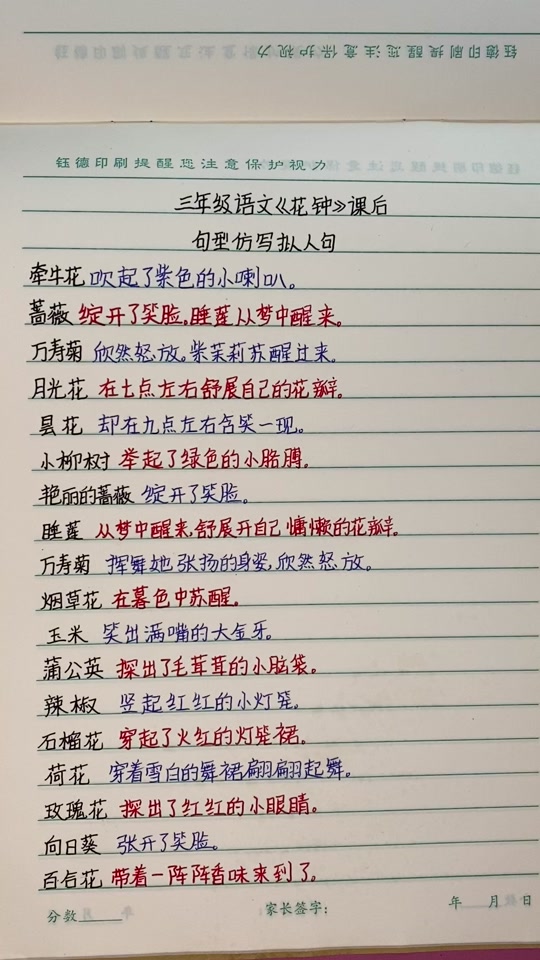 钰德印刷提醒您注意保护视力
钰德印刷提醒您注意保护视力
三年级语文《花钟》课后
句型仿写拟人句
牵牛花 吹起了紫色的小喇叭。
蔷薇 绽开了笑脸,睡莲从梦中醒来。
万寿菊 欣然怒放。紫茉莉苏醒过来。
月光花 在七点左右舒展自己的花瓣。
昙花 却在九点左右含笑一现。
小柳树 举起了绿色的小胳膊。
艳丽的蔷薇 绽开了笑脸。
睡莲 从梦中醒来,舒展开自己慵懒的花瓣。
万寿菊 挥舞她张扬的身姿,欣然怒放。
烟草花 在暮色中苏醒。
玉米 笑出满嘴的大金牙。
蒲公英 探出了毛茸茸的小脑袋。
辣椒 竖起红红的小灯笼。
石榴花 穿起了火红的灯笼裙。
荷花 穿着雪白的舞裙翩翩起舞。
玫瑰花 探出了红红的小眼睛。
向日葵 张开了笑脸。
百合花 带着一阵阵香味来到了。
分数 家长签字: 年 月 日